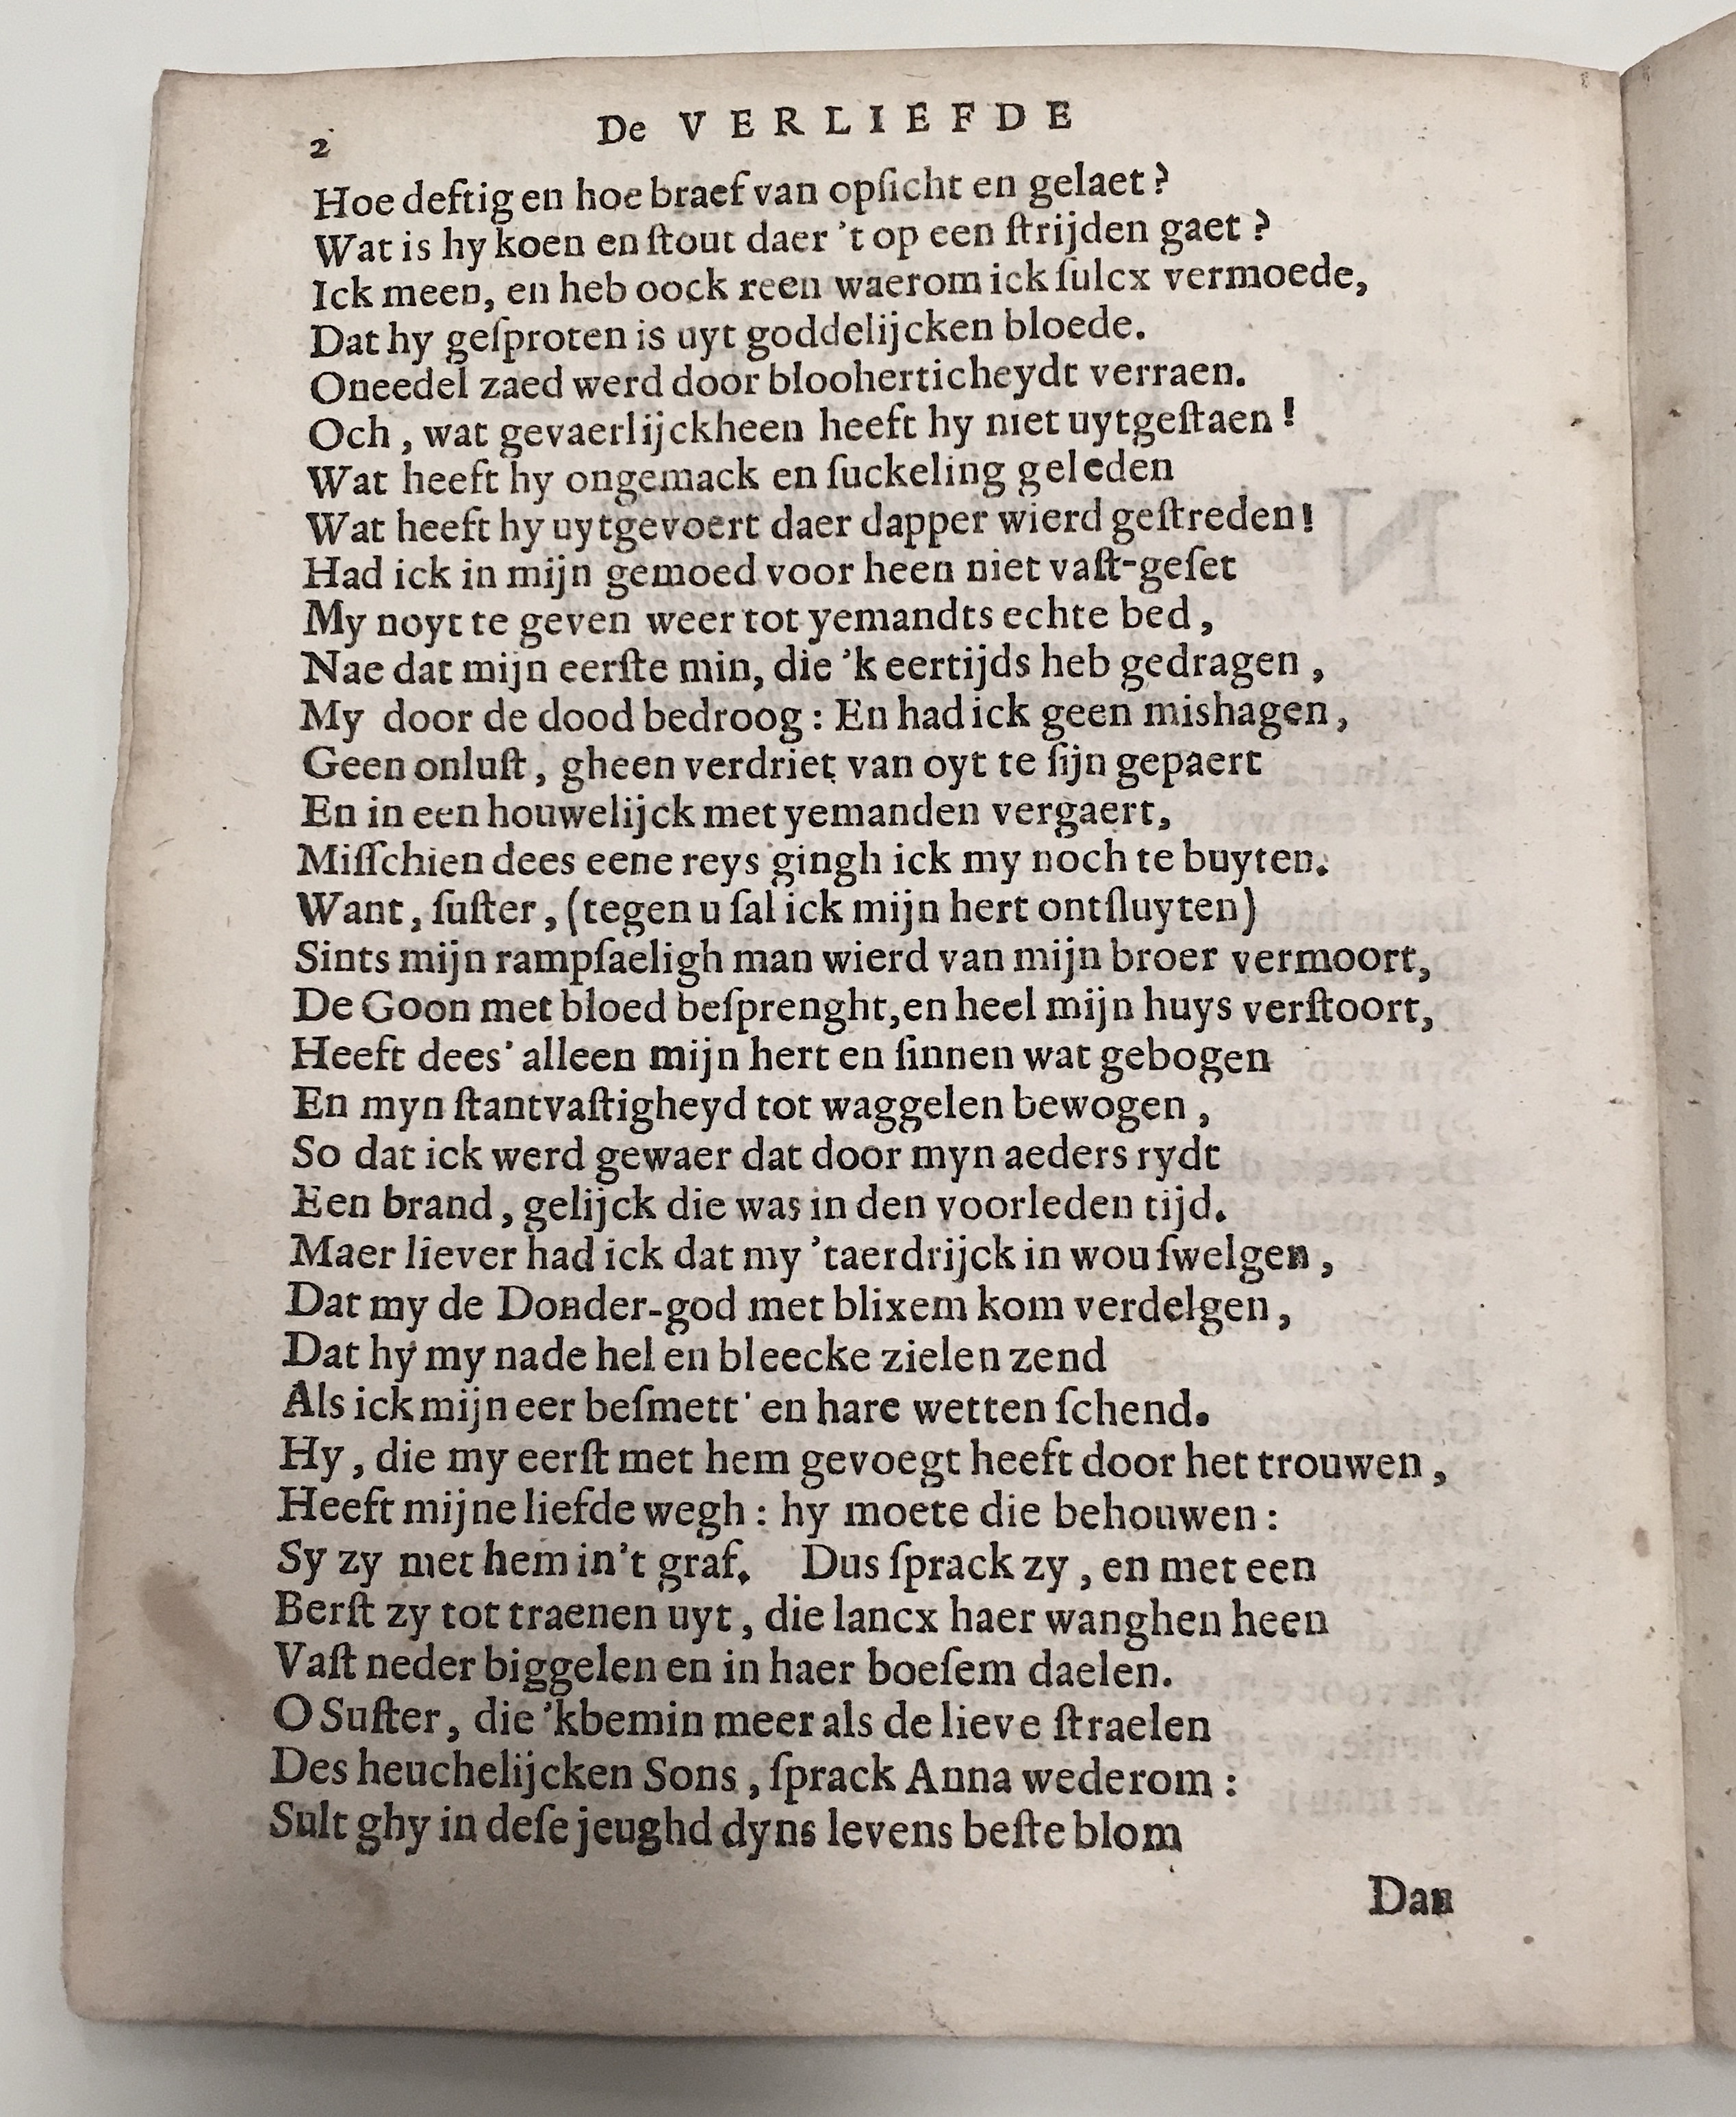 2 De VERLIEFDE
Hoe deftig en hoe braef van opſicht en gelaet?
Wat is hy koen en ſtout daer 't op een ſtrijden gaet?
Ick meen, en heb oock reen waerom ick ſulcx vermoede,
Dat hy geſproten is uyt goddelijcken bloede.
Oneedel zaed werd door blooherticheydt verraen.
Och, wat gevaerlijckheen heeft hy niet uytgeſtaen!
Wat heeft hy ongemack en ſuckeling geleden
Wat heeft hy uytgevoert daer dapper wierd geſtreden!
Had ick in mijn gemoed voor heen niet vaſt-geſet
My noyt te geven weer tot yemandts echte bed,
Nae dat mijn eerſte min, die 'k eertijds heb gedragen,
My door de dood bedroog: En had ick geen mishagen,
Geen onluſt, gheen verdriet van oyt te ſijn gepaert
En in een houwelijck met yemanden vergaert,
Miſſchien dees eene reys gingh ick my noch te buyten.
Want, ſuſter, (tegen u ſal ick mijn hert ontſluyten)
Sints mijn rampſaeligh man wierd van mijn broer vermoort,
De Goon met bloed beſprenght, en heel mijn huys verſtoort,
Heeft dees' alleen mijn hert en ſinnen wat gebogen
En myn ſtantvaſtigheyd tot waggelen bewogen,
So dat ick werd gewaer dat door myn aeders rydt
Een brand, gelijck die was in den voorleden tijd.
Maer liever had ick dat my 'taerdrijck in wou ſwelgen,
Dat my de Donder-god met blixem kom verdelgen,
Dat hy my na de hel en bleecke zielen zend
Als ick mijn eer beſmett' en hare wetten ſchend.
Hy, die my eerſt met hem gevoegt heeft door het trouwen,
Heeft mijne liefde wegh: hy moete die behouwen:
Sy zy met hem in't graf. Dus ſprack zy, en met een
Berſt zy tot traenen uyt, die lancx haer wanghen heen
Vaſt neder biggelen en in haer boeſem daelen.
O Suſter, die 'kbemin meer als de lieve ſtraelen
Des heuchelijcken Sons, ſprack Anna wederom:
Sult ghy in deſe jeughd dyns levens beſte blom
Dan